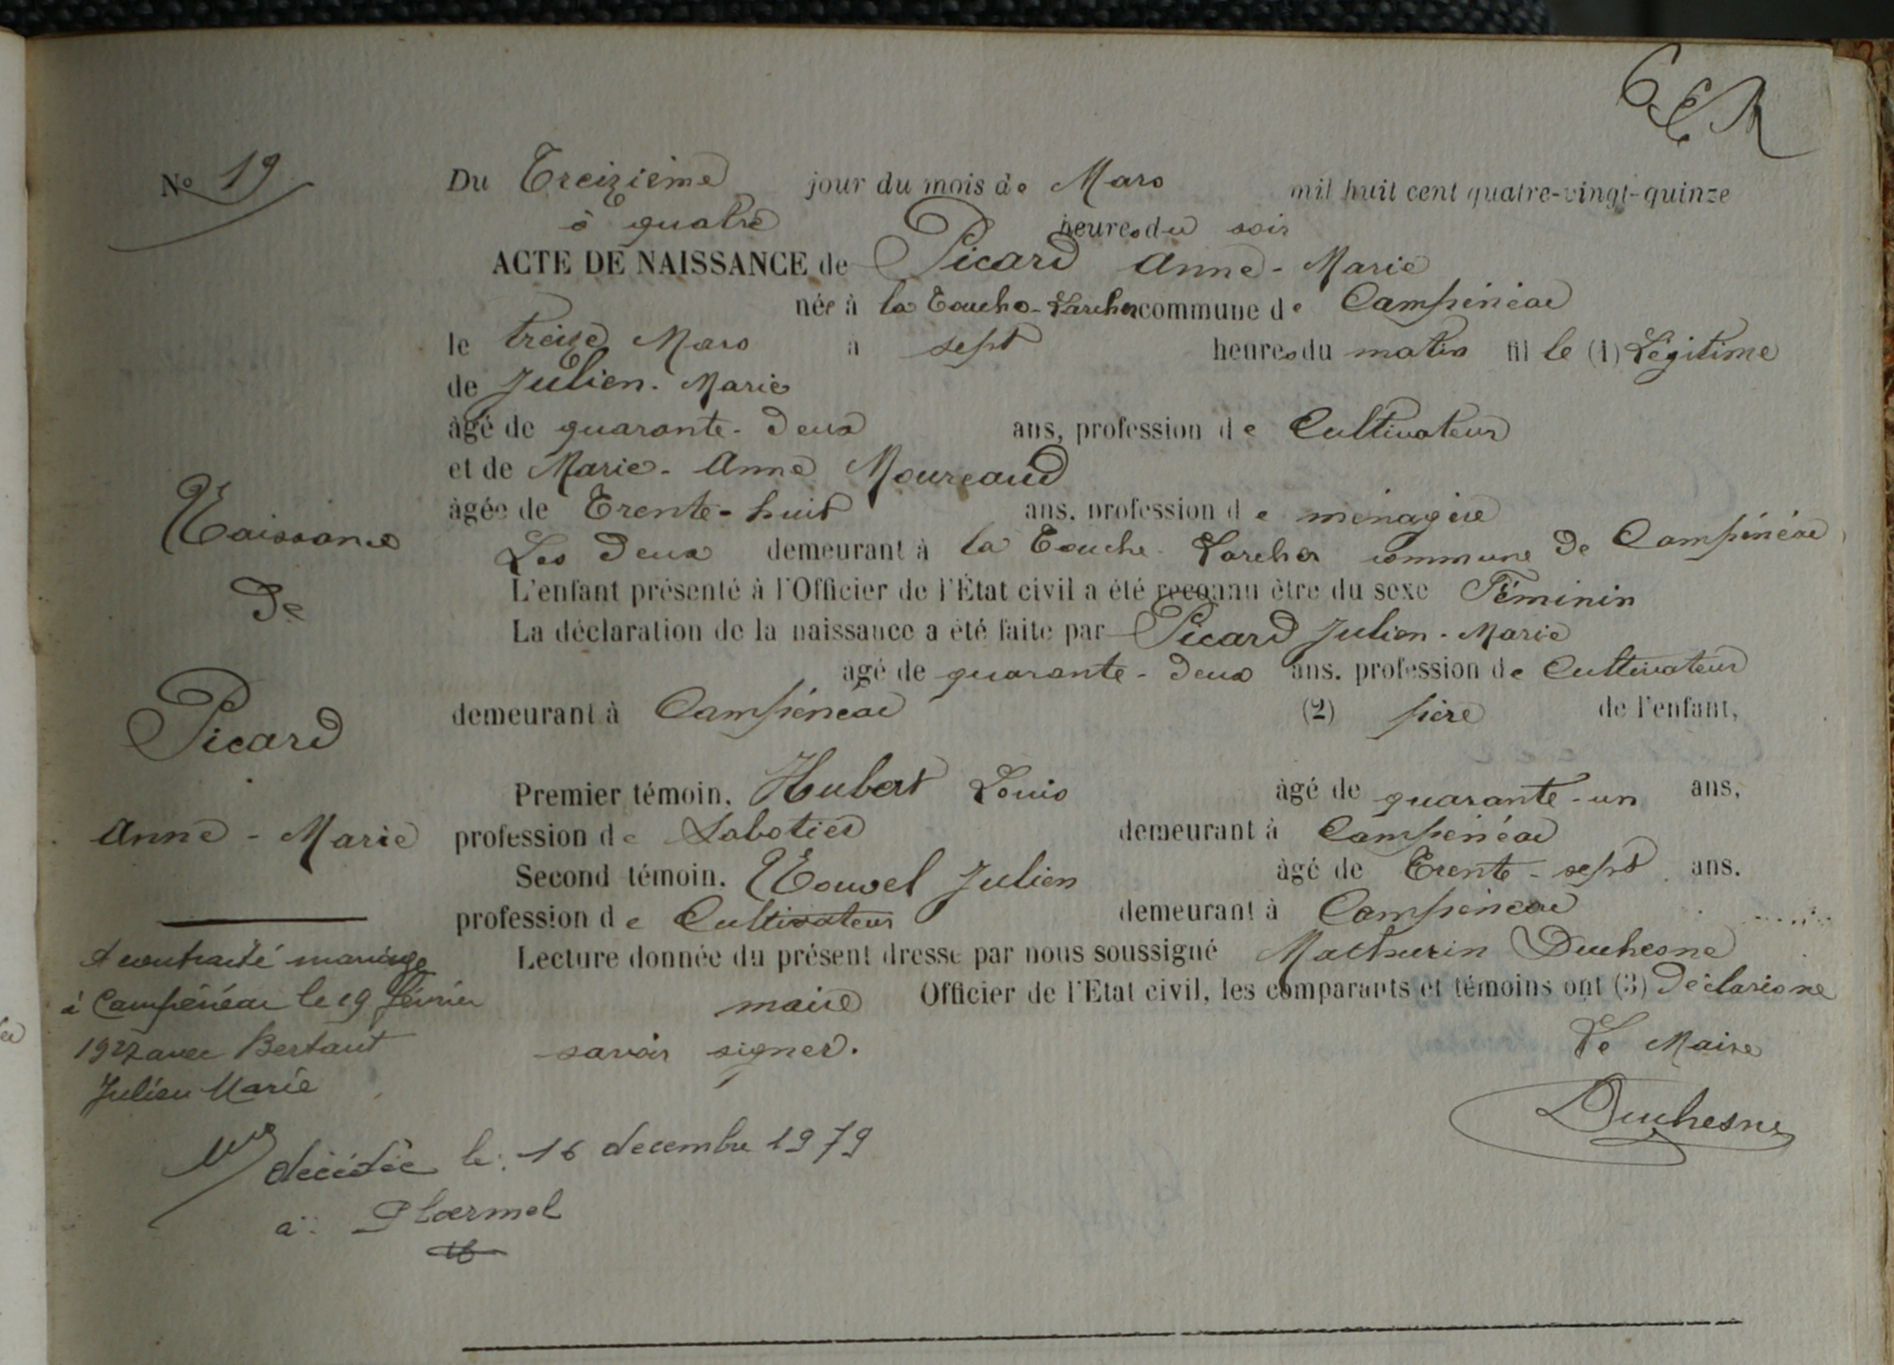 N° 19
Du Treizième jour du mois de Mars mil huit cent quatre-vingt-quinze
à quatre heures du soir
ACTE DE NAISSANCE de Picard Anne-Marie
née à la Touche-Larcher commune de Campénéac
le treize Mars à sept heures du matin fille (1) Légitime
de Julien-Marie
âgé de quarante-deux ans, profession de Cultivateur
et de Marie-Anne Moureaud
âgée de Trente-huit ans, profession de ménagère
Les deux demeurant à la Touche-Larcher commune de Campénéac
L'enfant présenté à l'Officier de l'État civil a été reconnu être du sexe Féminin
La déclaration de la naissance a été faite par Picard Julien-Marie
âgé de quarante-deux ans, profession de Cultivateur
demeurant à Campénéac (2) père de l'enfant,
Premier témoin, Hubert Louis âgé de quarante-un ans,
profession de Sabotier demeurant à Campénéac
Second témoin, Nouvel Julien âgé de Trente-sept ans.
profession de Cultivateur demeurant à Campénéac
Lecture donnée du présent dressé par nous soussigné Mathurin Duchesne
maire Officier de l'Etat civil, les comparants et témoins ont (3) déclaré ne
savoir signer.
Le Maire
Duchesne
Naissance
de
Picard
Anne-Marie
A contracté mariage
à Campénéac le 19 février
1927 avec Bertaut
Julien Marie
décédée le: 16 decembre 1979
à: Ploermel